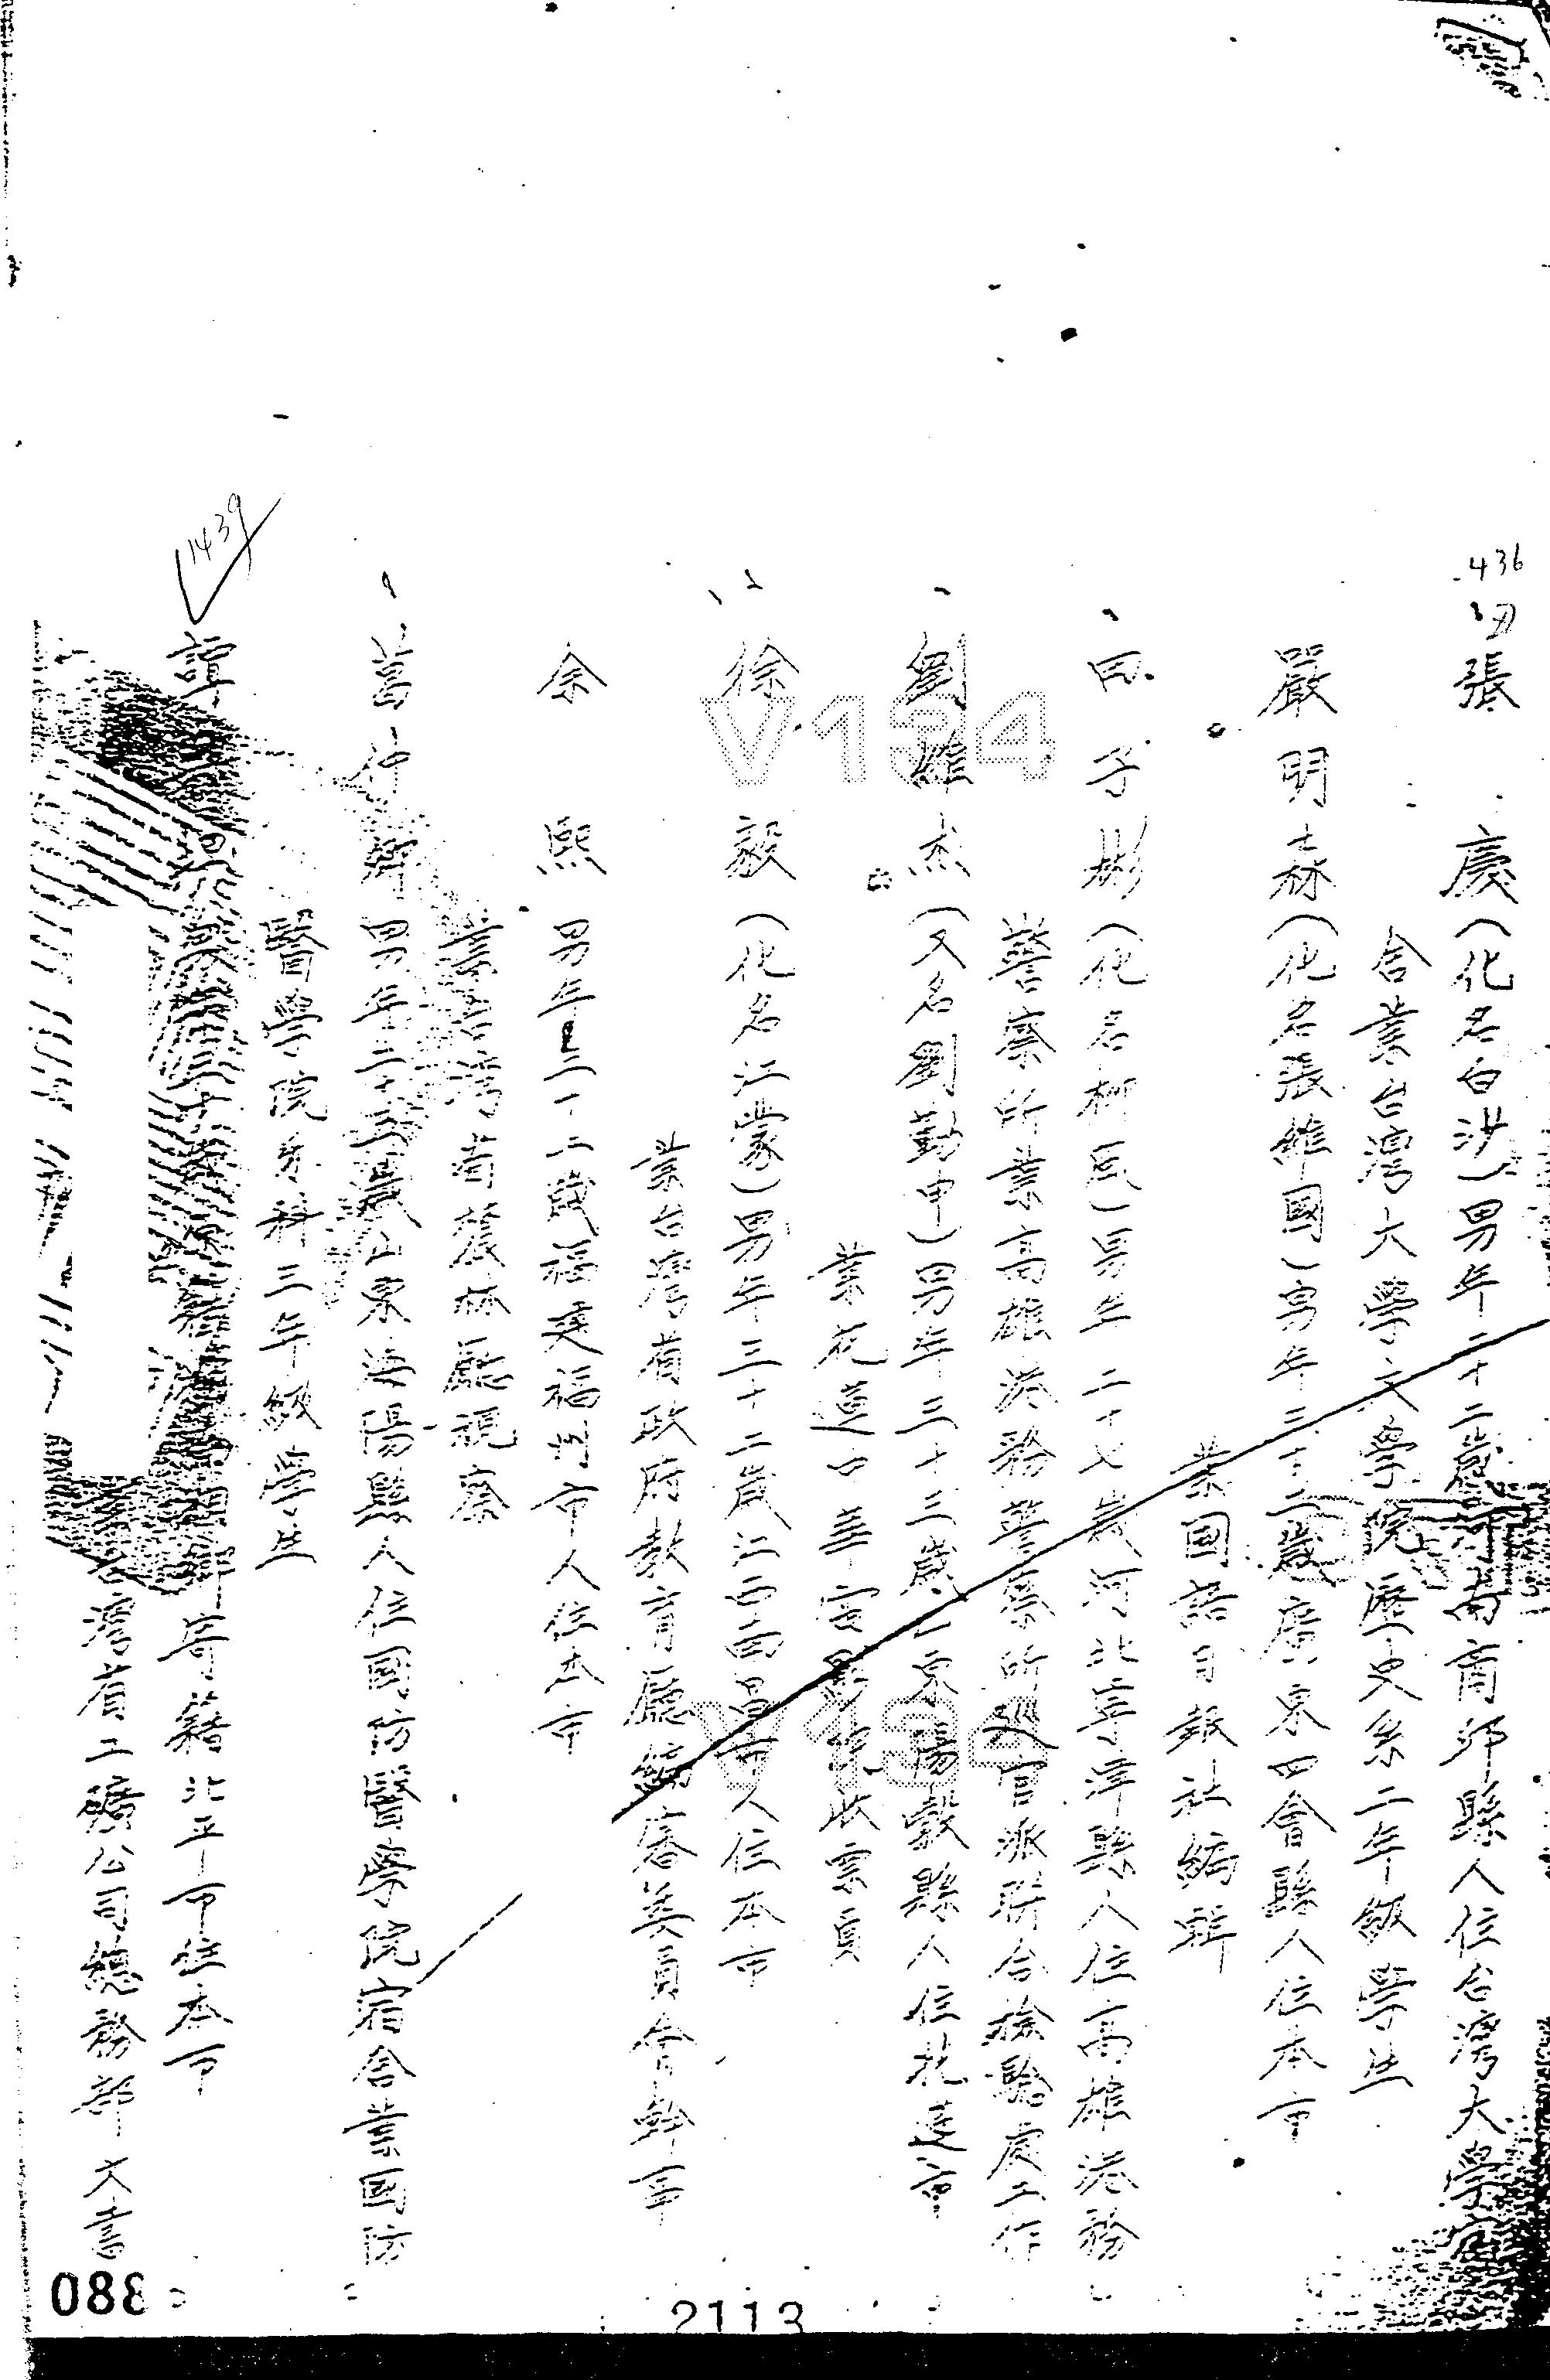 436
張 慶(化名白沙)男年二十二歲河南商邱縣人住台灣大學宿
舍業台灣大學文學院歷史系二年級學生
嚴明森(化名張維國)男年三十二歲廣東四會縣人住本市
業國語日報社編輯
田子彬(化名柳風)男年二十七歲河北寧津縣人住高雄港務
警察所業高雄港務警察所巡官派聯合檢驗處工作
劉雄杰(又名劉勤甲)男年三十三歲山東陽穀縣人住花蓮市
業花蓮口
收票員
徐 毅(化名江濛)男年三十二歲江西南昌市人住本市
業台灣省政府教育廳編審委員會幹事
余 熙 男年三十二歲福建福州市人住本市
業台灣省農林廳視察
葛仲卿 男年二十五歲山東海陽縣人住國防醫學院宿舍業國防
醫學院牙科三年級學生
1439
譚
寄籍北平市住本市
台灣省工礦公司總務部文書
V134
V134
088
2113